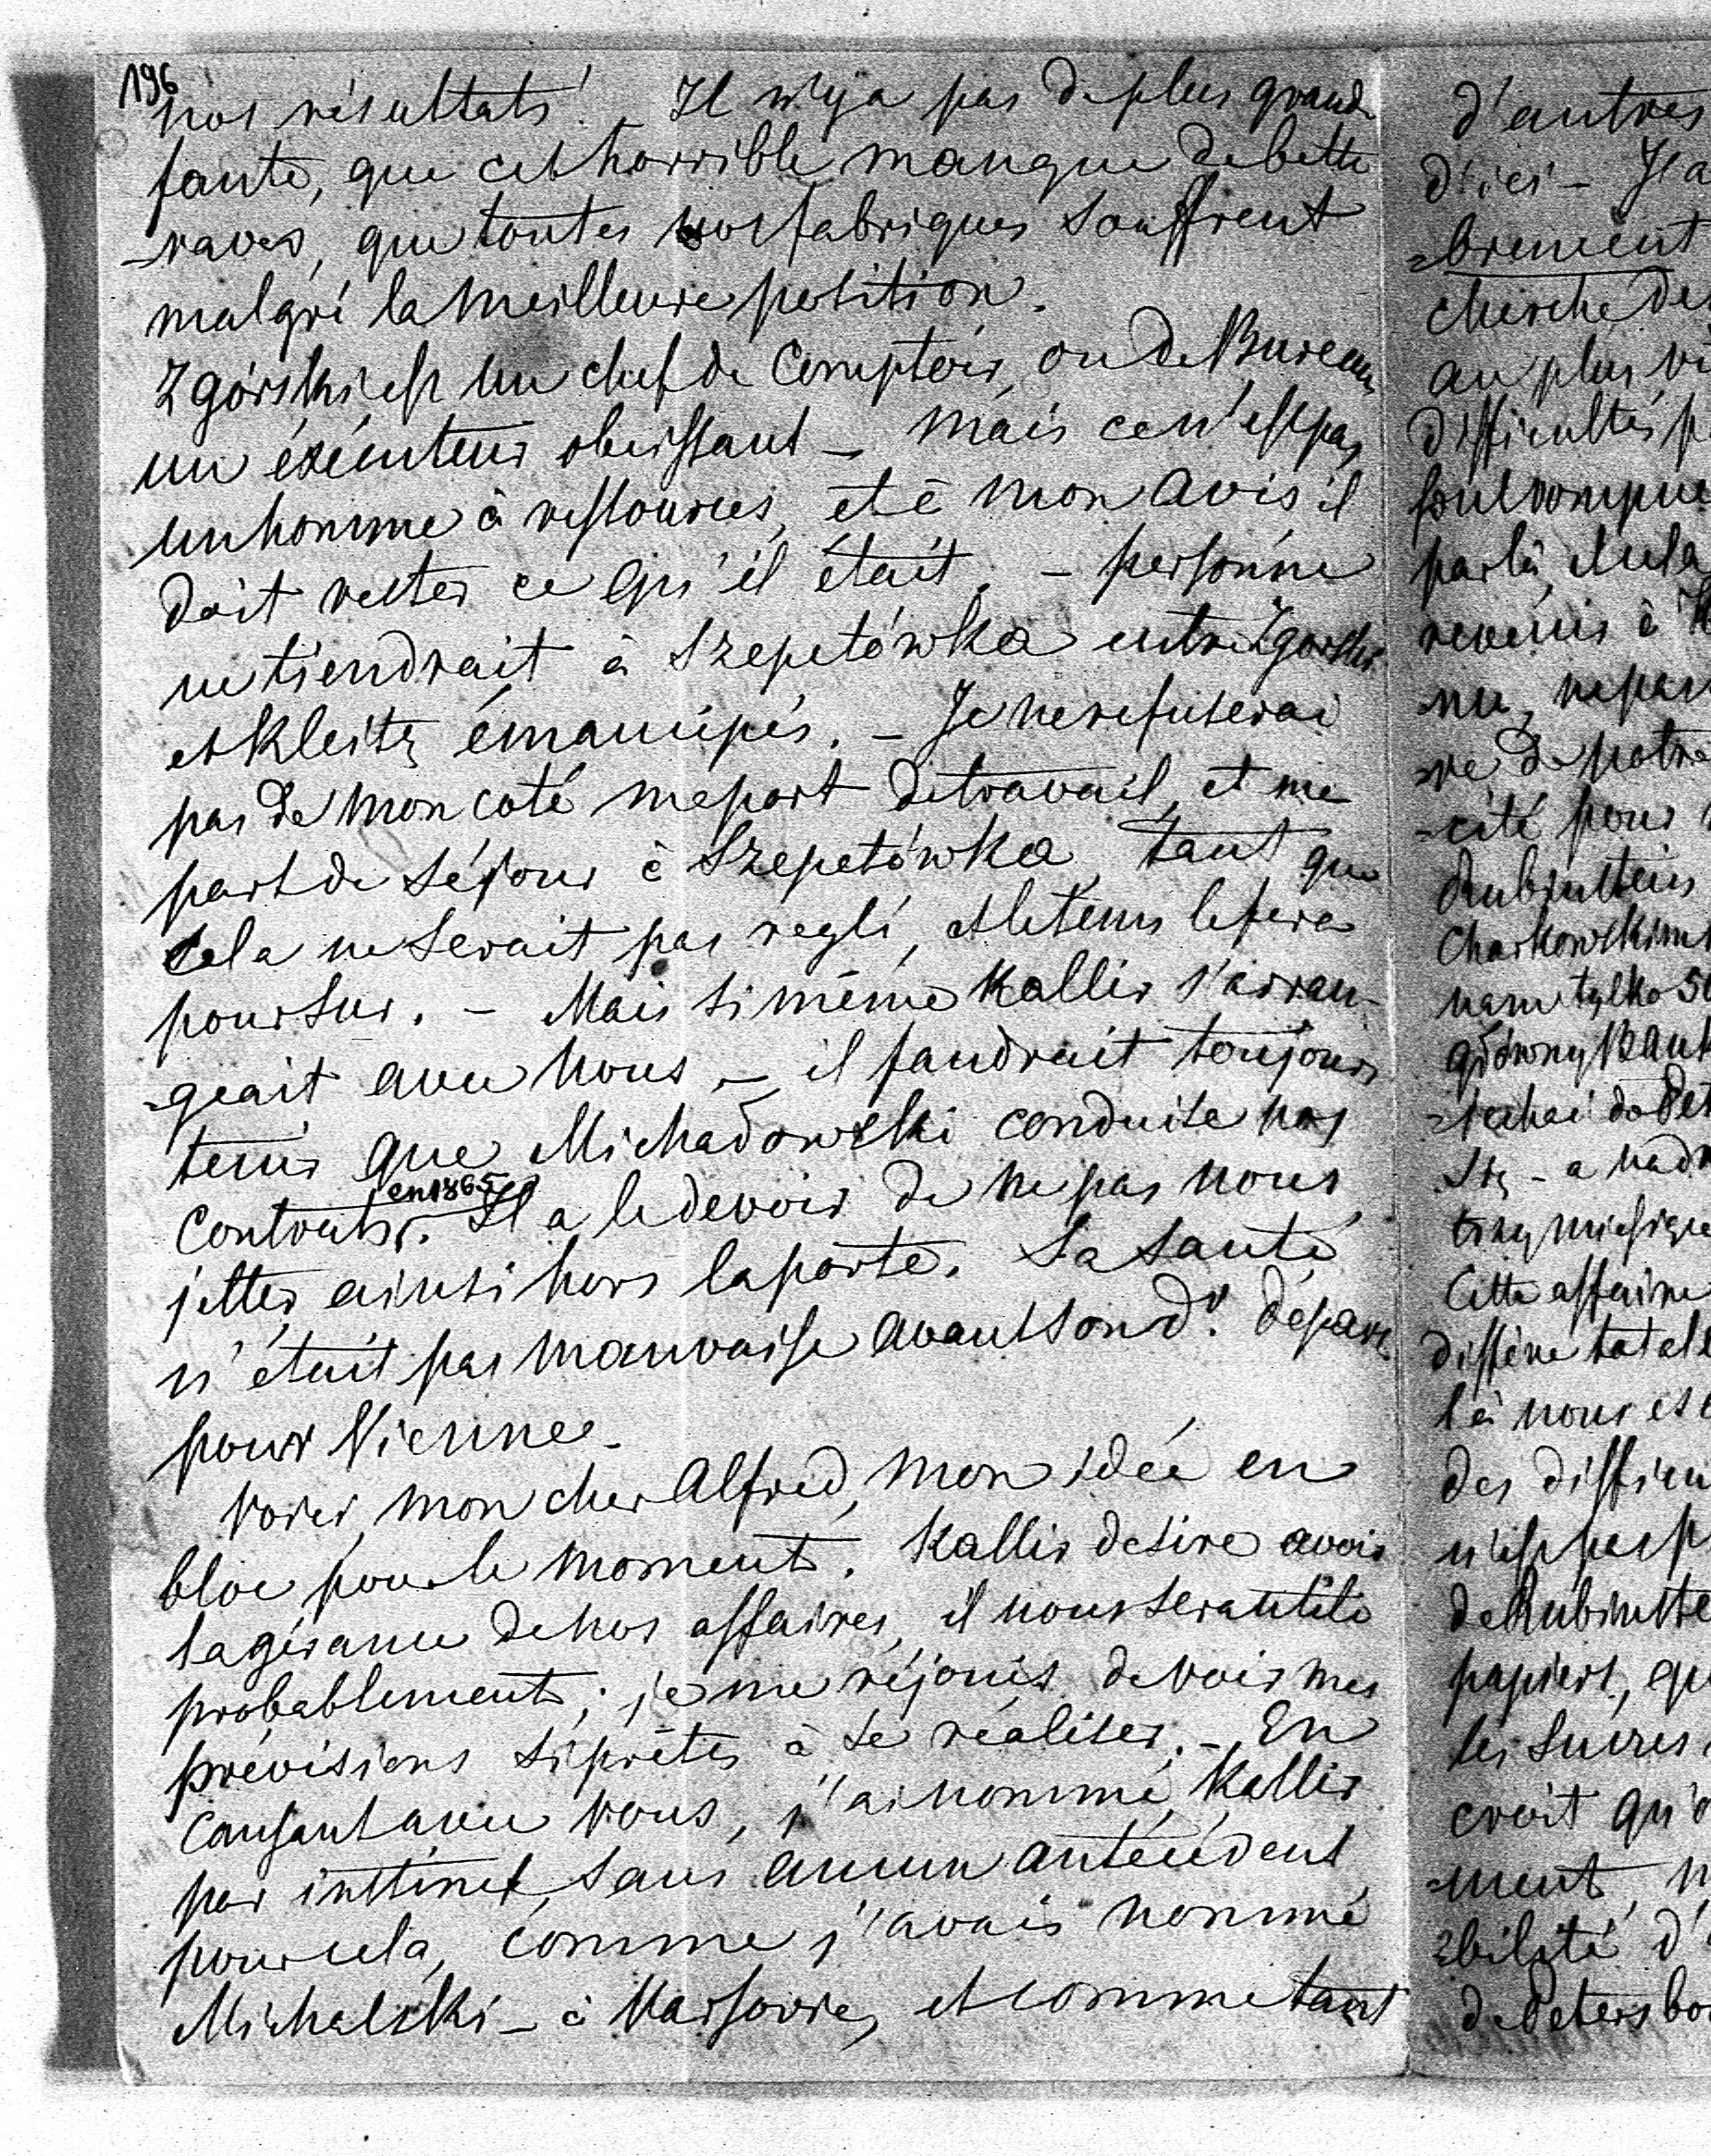 196
nos résultats! Il n'y a pas de plus grande
faute, que cet horrible manque de bette
-raves, que toutes nos fabriques souffrent
malgré la meilleure position.
Zgórski est un chef de Comptoir, ou de Bureau,
un éxécuteur obeissant – mais ce n'est pas
un homme à ressources, et à mon avis il
doit rester ce qu'il était. – personne
ne tiendrait à Szepetówka entre Zgorski
et Kleitz émancipés. – Je ne refuserai
pas de mon coté ma part de travail, et ma
part de séjour à Szepetówka, tant que
cela ne serait pas reglé, et le tems le fera
pour sur. – Mais si même Kallir s'arran-
-geait avec nous – il faudrait toujours
tenir que Michałowski conduise nos
Contrats en 1865. Il a le devoir de ne pas nous
jetter ainsi hors la porte. Sa santé
n'était pas mauvaise avant son dr. départ
pour Vienne.
Voici, mon cher Alfred, mon idée en
bloc pour le moment. Kallir desire avoir
la gérance de nos affaires, il nous sera utile
probablement; je me réjouis de voir mes
prévisions si prêtes à se réaliser. – En
causant avec vous, j'ai nommé Kallir
par instinct, sans aucun antécédent
pour cela, comme j'avais nommé
Michelski – à Varsovie, et comme tant
d'autres
d'ici – Il a
-brement
cherché de
au plus vi
difficultés p
par là, et
revenir à
-re de notre
-cité pour
Rubinstein
Charkowskim
nam tylko 50
główny Bank
Cette affaire
diffère total
là nous
des difficu
n'est pas p
de Rubinste
papiers, qu
les sucres
croit qu'o
-ment, n
-bilité d'
de Petersbo